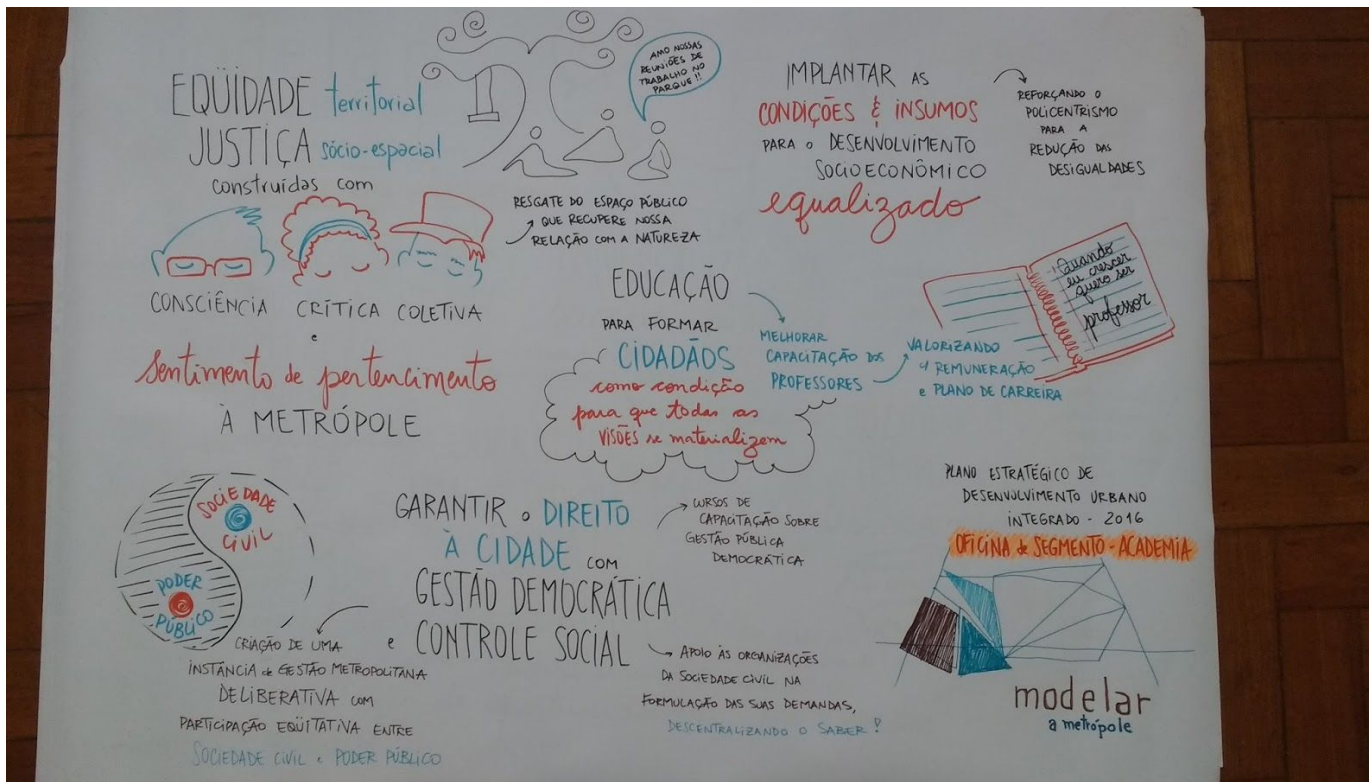 EQÜIDADE territorial
JUSTIÇA sócio-espacial
construídas com
CONSCIÊNCIA CRÍTICA COLETIVA
e
Sentimento de pertencimento
À METRÓPOLE
AMO NOSSAS
REUNIÕES DE
TRABALHO NO
PARQUE!!
RESGATE DO ESPAÇO PÚBLICO
QUE RECUPERE NOSSA
RELAÇÃO COM A NATUREZA
IMPLANTAR AS
CONDIÇÕES & INSUMOS
PARA O DESENVOLVIMENTO
SOCIOECONÔMICO
equalizado
REFORÇANDO O
POLICENTRISMO
PARA A
REDUÇÃO DAS
DESIGUALDADES
EDUCAÇÃO
PARA FORMAR
CIDADÃOS
como condição
para que todas as
VISÕES se materializem
MELHORAR
CAPACITAÇÃO DOS
PROFESSORES
VALORIZANDO
REMUNERAÇÃO
e PLANO DE CARREIRA
Quando
eu crescer
quero ser
professor
SOCIEDADE
CIVIL
PODER
PÚBLICO
CRIAÇÃO DE UMA
INSTÂNCIA de GESTÃO METROPOLITANA
DELIBERATIVA COM
PARTICIPAÇÃO EQÜITATIVA ENTRE
SOCIEDADE CIVIL e PODER PÚBLICO
GARANTIR o DIREITO
À CIDADE COM
GESTÃO DEMOCRÁTICA
e CONTROLE SOCIAL
CURSOS DE
CAPACITAÇÃO SOBRE
GESTÃO PÚBLICA
DEMOCRÁTICA
APOIO ÀS ORGANIZAÇÕES
DA SOCIEDADE CIVIL NA
FORMULAÇÃO DAS SUAS DEMANDAS,
DESCENTRALIZANDO O SABER!
PLANO ESTRATÉGICO DE
DESENVOLVIMENTO URBANO
INTEGRADO - 2016
OFICINA de SEGMENTO - ACADEMIA
modelar
a metrópole